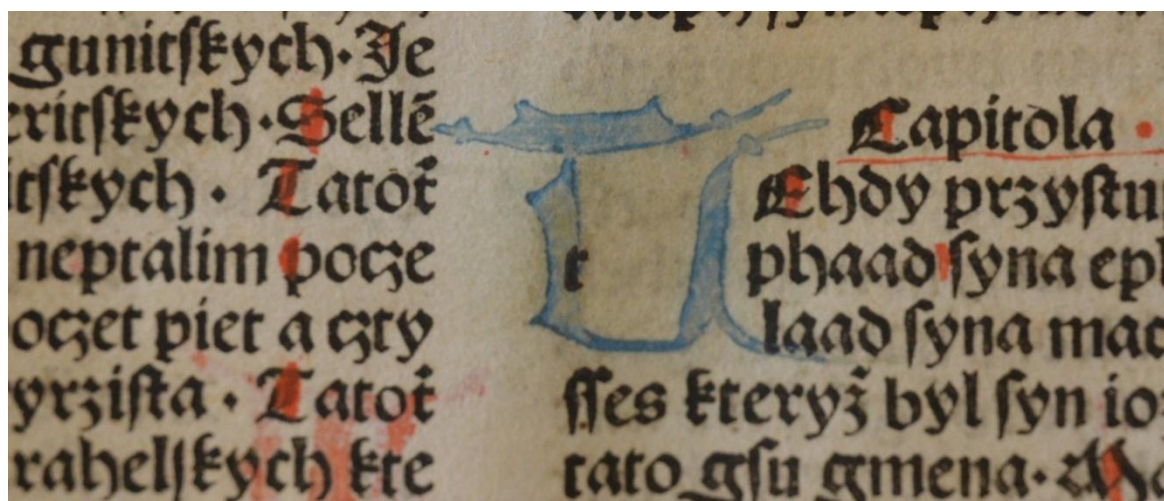 gunitſkych· Je
ritſkych ·Sellē
itſkych · Tatot̃
neptalim pocze
oczet piet a czty
yrziſta · Tatot̃
rahelſkych kte
Capitola
T
t
Ehdy przyſtu
phaad ſyna eph
laad ſyna mac
ſſes kteryz̃ byl ſyn io
tato gſu gmena·